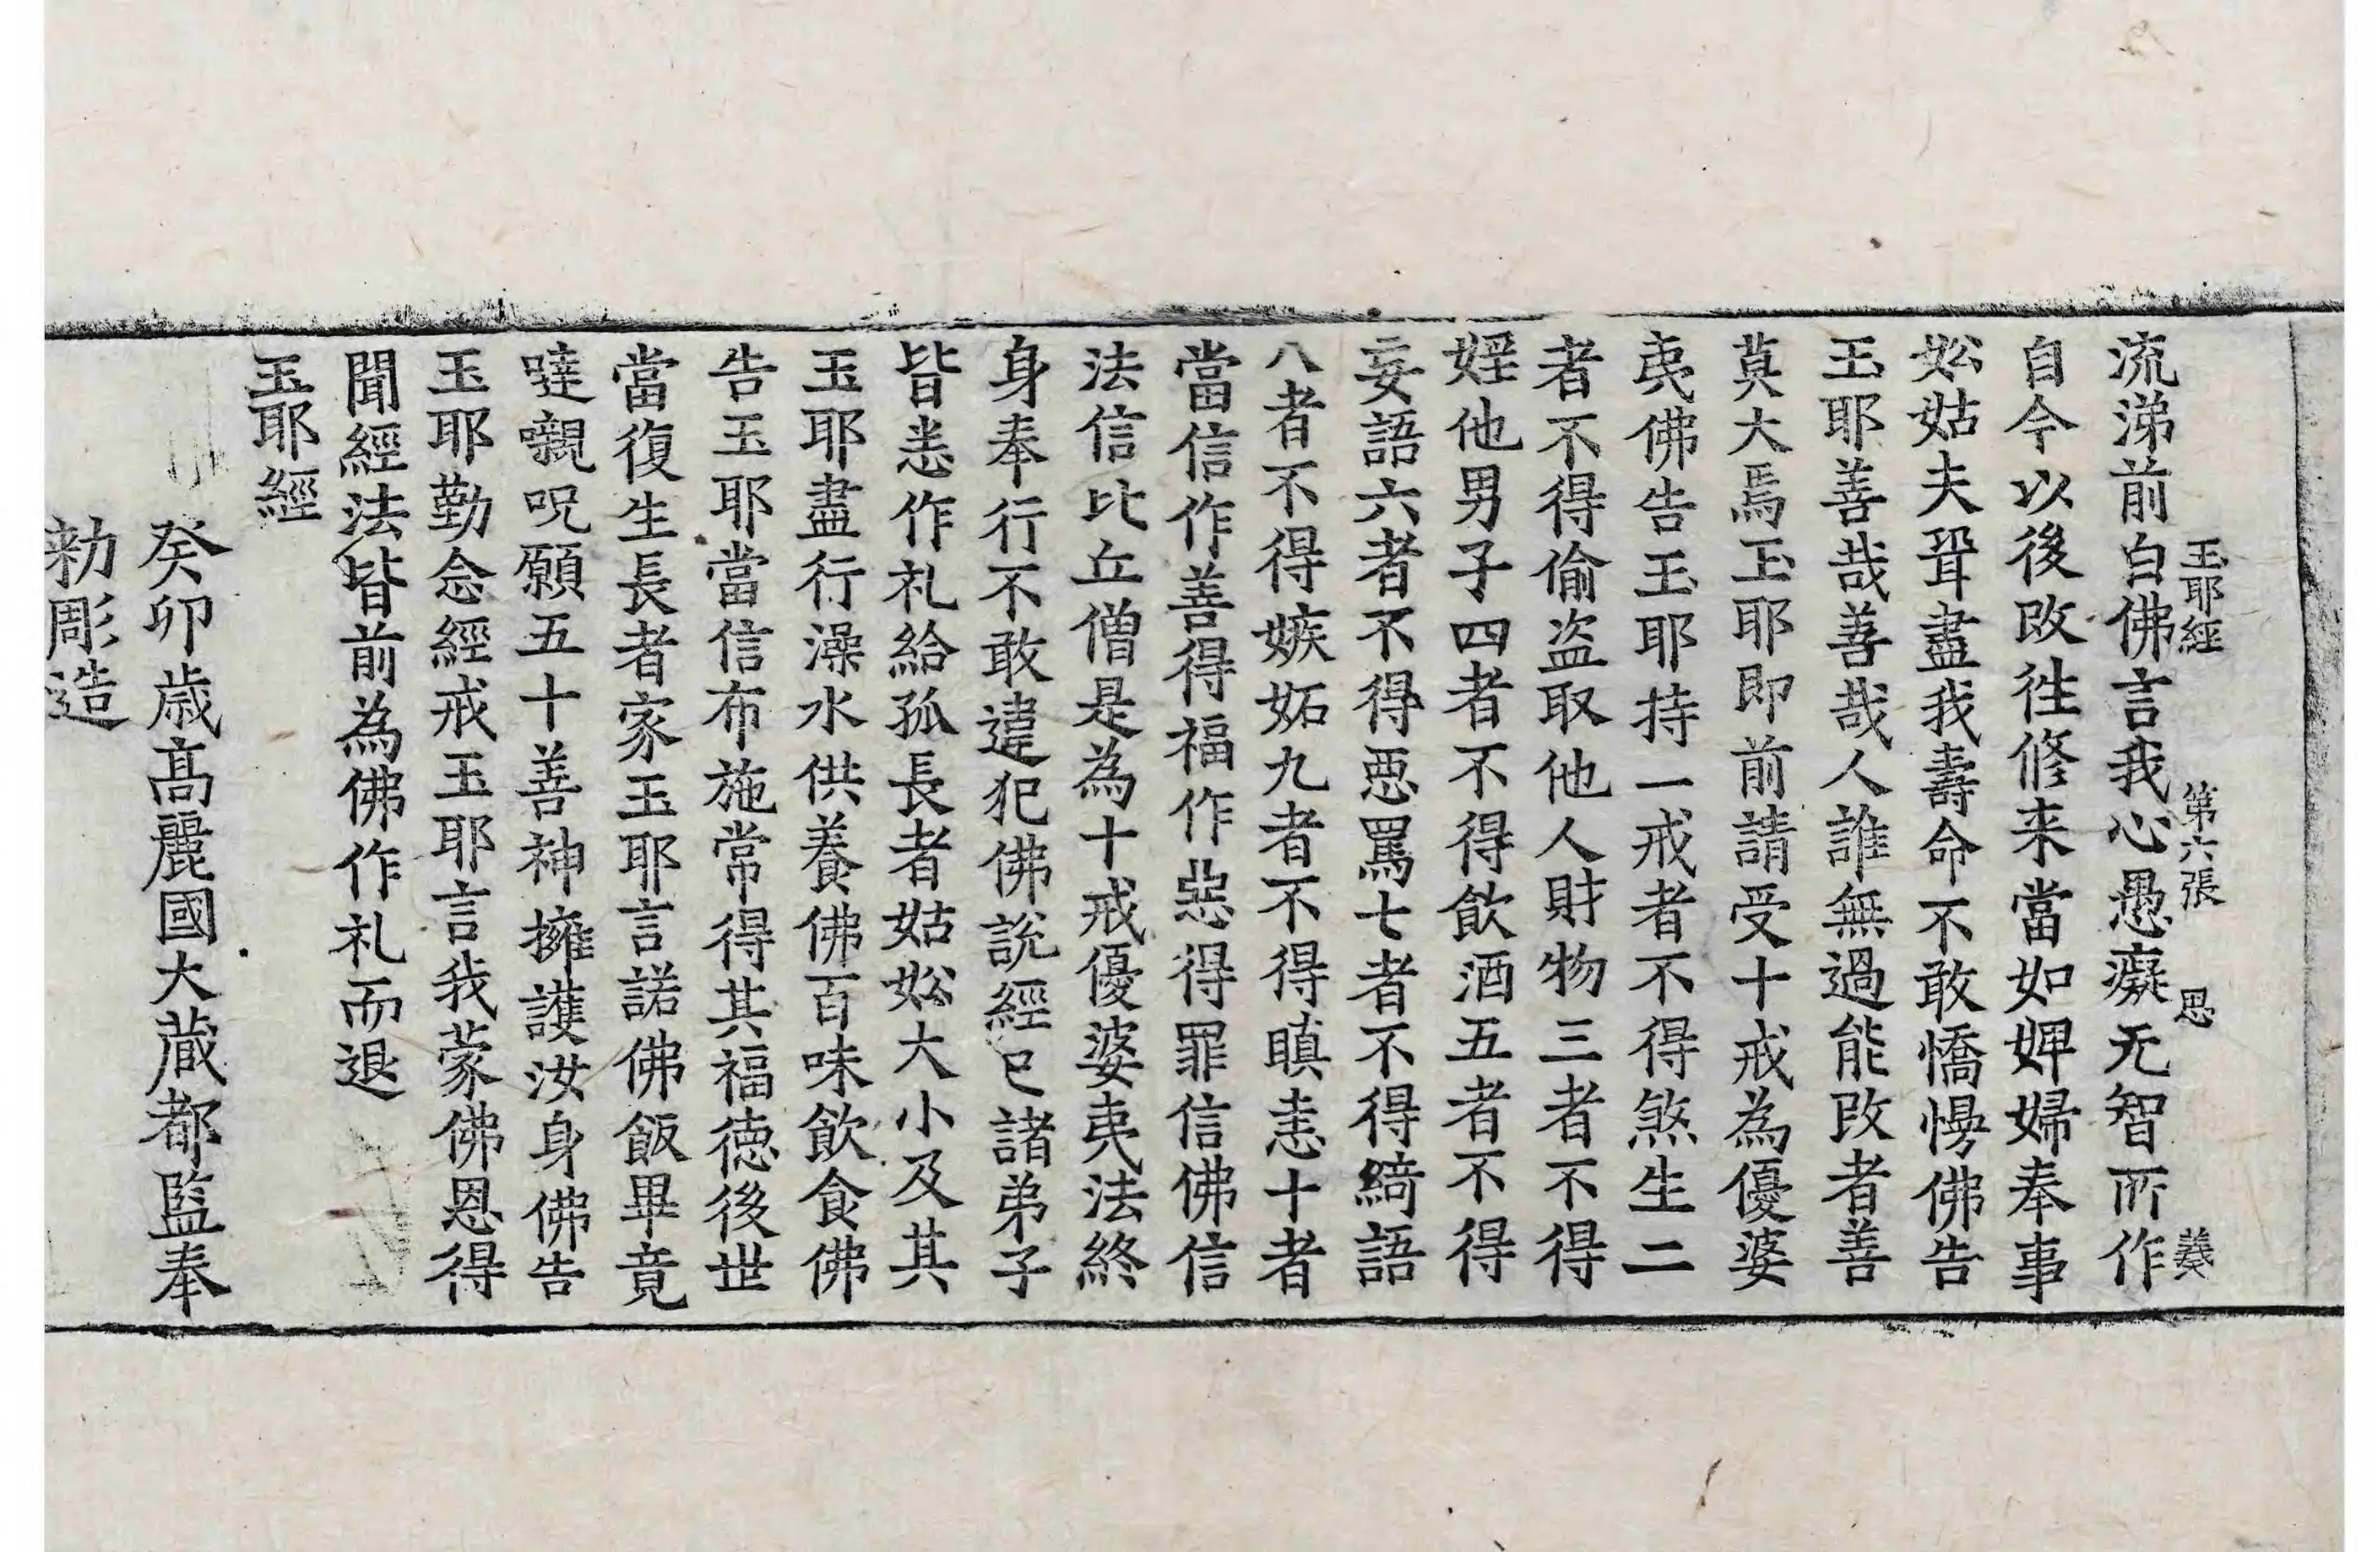 玉耶經 第六張 思 義
流涕前白佛言我心愚癡无智所作
自今以後改往修来當如婢婦奉事
妐姑夫聟盡我壽命不敢憍慢佛告
玉耶善哉善哉人誰無過能改者善
莫大焉玉耶即前請受十戒為優婆
夷佛告玉耶持一戒者不得煞生二
者不得偷盗取他人財物三者不得
婬他男子四者不得飲酒五者不得
妄語六者不得惡罵七者不得綺語
八者不得嫉妬九者不得瞋恚十者
當信作善得福作惡得罪信佛信
法信比丘僧是為十戒優婆夷法終
身奉行不敢違犯佛說經已諸弟子
皆悉作礼給孤長者姑妐大小及其
玉耶盡行澡水供養佛百味飲食佛
告玉耶當信布施常得其福德後世
當復生長者家玉耶言諾佛飯畢竟
噠嚫呪願五十善神擁護汝身佛告
玉耶勤念經戒玉耶言我蒙佛恩得
聞經法皆前為佛作礼而退
玉耶經
癸卯歳髙麗國大蔵都監奉
勑彫造